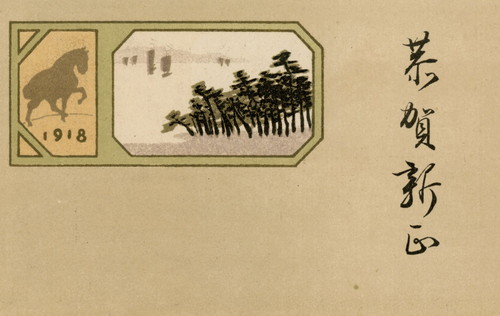 1918
恭賀新正